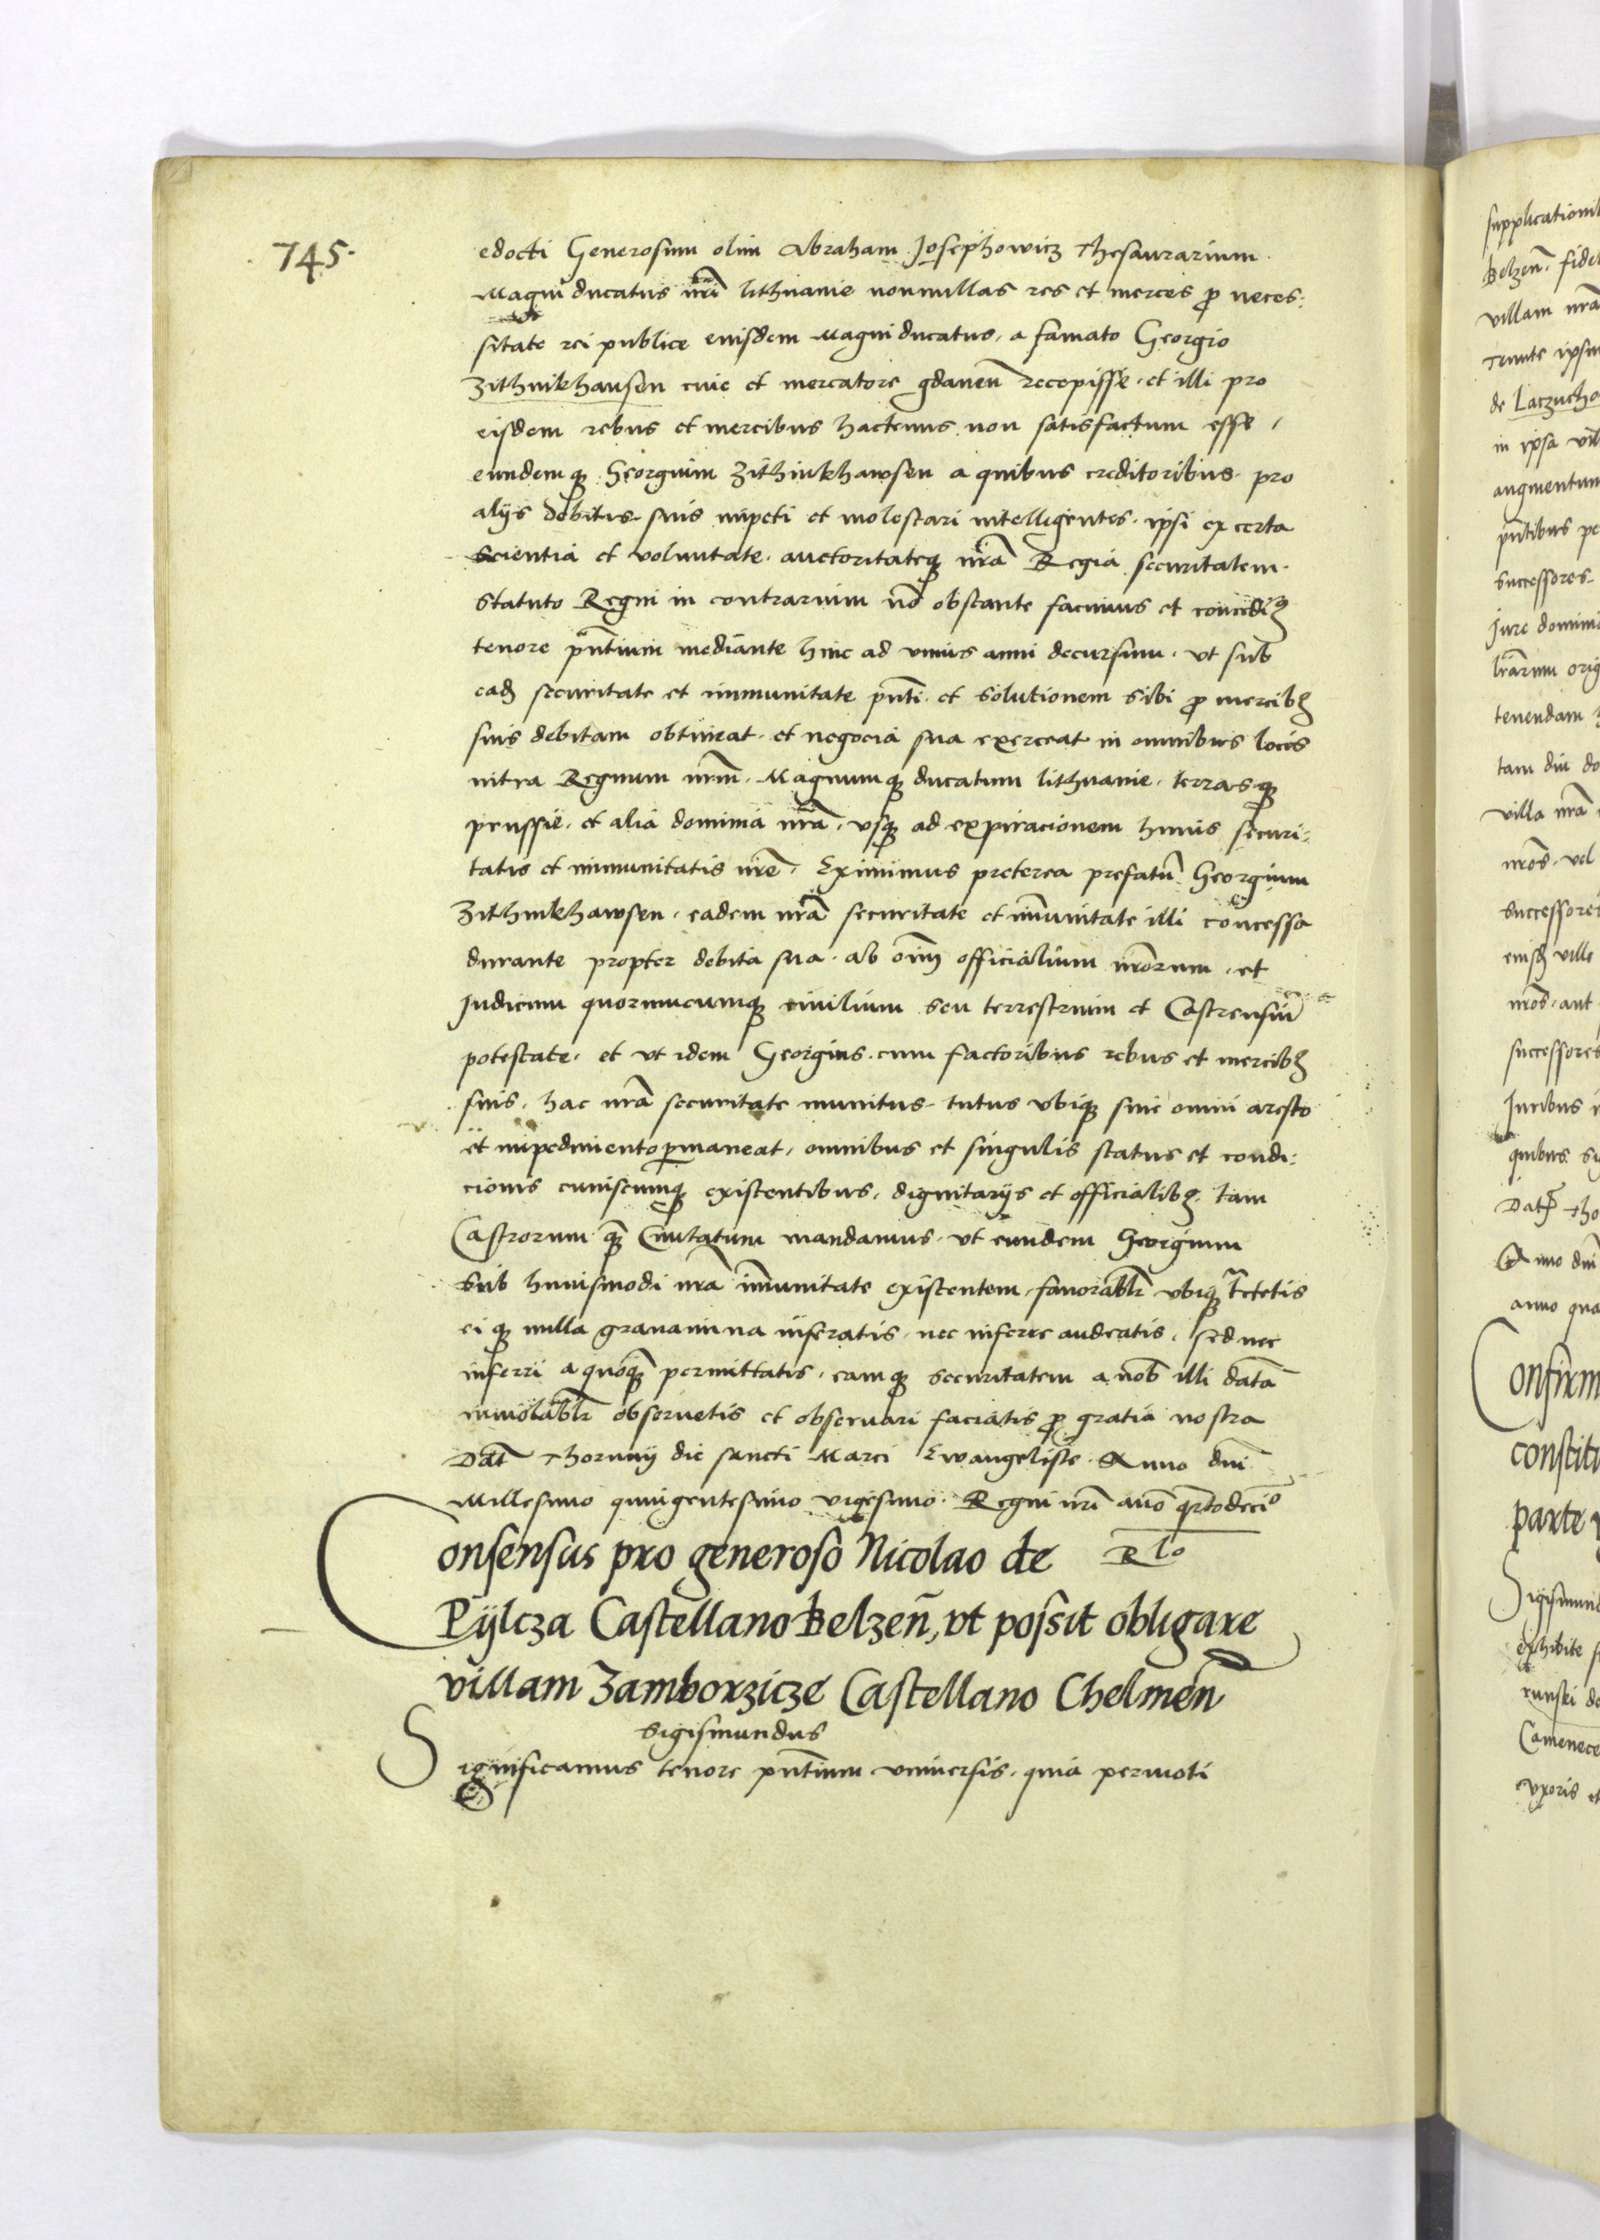 745.
edocti Generosum olim Abraham Josephowicz Thesaurarium
Magni ducatus nr̃i lithuanie nonnullas res et merces ꝓ neces:
sitate rei publice eiusdem Magni ducatus, a famato Georgio
Zithinkhausen ciue et mercatore gdanen̄ recepisse, et illi pro
eisdem rebus et mercibus hactenus non satisfactum esse,
eundemqꝫ Georgium Zithinkhawsen a quibus creditoribus pro
alijs debitis suis impeti et molestari intelligentes, ipsi ex certa
scientia et voluntate, auctoritateqꝫ nr̃a Regia securitatem
statuto Regni in contrarium nō obstante facimus et concedimꝰ
tenore pn̄tium mediante hinc ad vnius anni decursum, vt sub
eadꝫ securitate et immunitate pn̄ti, et solutionem sibi ꝓ mercibꝫ
suis debitam obtineat, et negocia sua exerceat in omnibus locis
intra Regnum nr̃m, Magnumqꝫ ducatum lithuanie, terrasqꝫ
prussie, et alia dominia nr̃a, vsqꝫ ad expiracionem huius securi:
tatis et immunitatis nr̃e, Eximimus preterea prefatū Georgium
Zithinkhawsen, eadem nr̃a securitate et im̄unitate illi concessa
durante propter debita sua, ab oīm officialium nr̃orum, et
Judicum quorumcumqꝫ ciuilium seu terrestrium et Castrensiū
potestate, et vt idem Georgius, cum factoribus rebus et mercibꝫ
suis, hac nr̃a securitate munitus, tutus vbiqꝫ sine omni aresto
et impedimento ꝑmaneat, omnibus et singulis status et condi:
cionis cuiuscumqꝫ existentibus, dignitarijs et officialibꝫ, tam
Castrorum qꝫ Ciuitatum mandamus, vt eundem Georgium
sub huiusmodi nr̃a im̄unitate existentem, fauorabl̃r vbiqꝫ tr̃ctetis
ei qꝫ nulla grauamina inferatis, nec inferre audeatis, sed nec
inferri a quoqꝫ permittatis, eamqꝫ securitatem a nob̄ illi datā
inuiolabl̃r obseruetis et obseruari faciatis ꝓ gratia nostra
Dat̄ Thoruny die sancti Marci Ewangeliste, Anno dn̄i
Millesimo quingentesimo vigesimo, Regni nr̃i an̄o qr̃todeciō
Consensus pro generoso Nicolao de Rto
Pijlcza Castellano Belzen̄, vt possit obligare
villam Zamborzicze Castellano Chelmen̄
Sigismundus
Significamus tenore pn̄tium vniuersis, quia permoti
supplicationi
Belzen̄, fidel
villam nr̃a
de Laczucho
in ipsa vil
augmentum
pn̄tibus pe
successores
Jure domini
lr̃arum orig
tenendam
tam diu do
villa nr̃a
nr̃os, vel
successores
eiusdꝫ ville
nr̃os, aut
successores
Juribus
quibus si
Dat̄ Tho
Anno dn̄i
anno qua
Confirm
constitu
parte
Sigismund
exhibite
runski de
Camenece
vxoris et